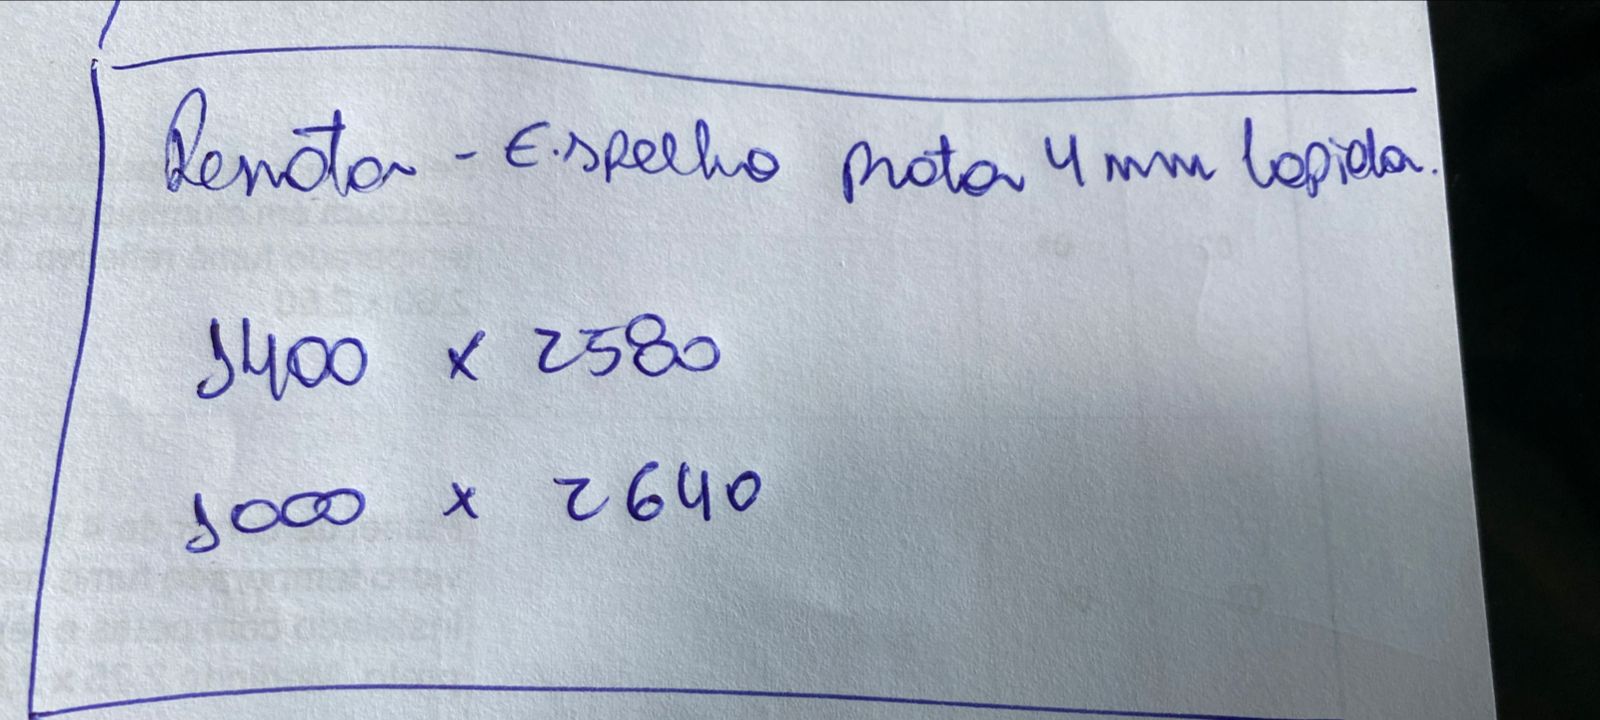 Renata - Espelho prata 4mm lapida.
1400 x 2580
1000 x 2640